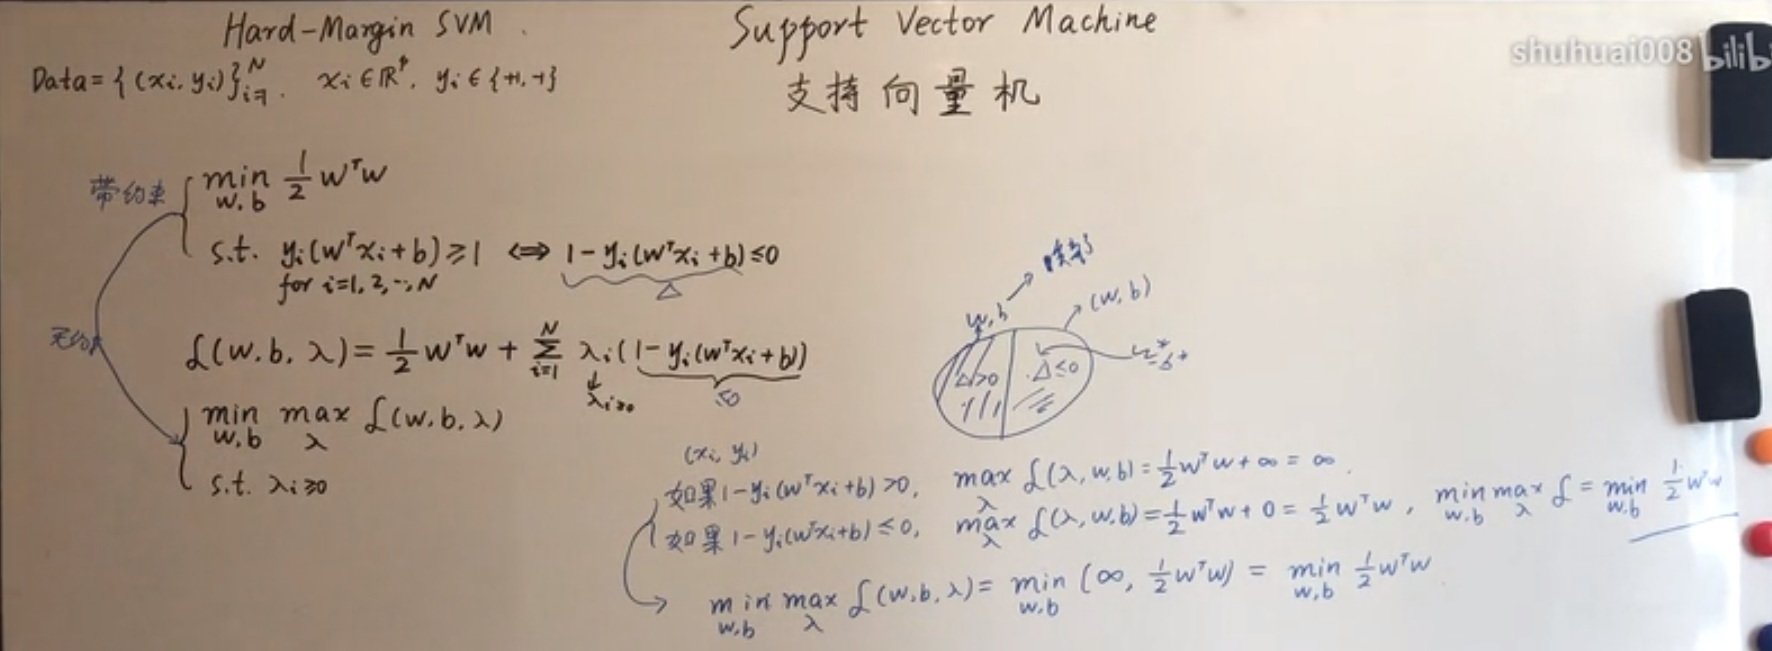 Hard-Margin SVM
Support Vector Machine
shuhuai008 bilib
Data = { (xi, yi) }ᵢ₌₁ᴺ, xi ∈ ℝᵖ, yi ∈ {+1, -1}
支持向量机
带约束
min w,b ½ wᵀw
s.t. yi(wᵀxi + b) ≥ 1 ⟺ 1 - yi(wᵀxi + b) ≤ 0
for i=1, 2, ..., N
Δ
无约
ℒ(w, b, λ) = ½ wᵀw + Σᵢ₌₁ᴺ λi(1 - yi(wᵀxi + b))
λi≥0
≤0
min w,b max λ ℒ(w, b, λ)
s.t. λi ≥ 0
w,b
(w, b)
Δ>0
Δ≤0
(xi, yi)
如果 1 - yi(wᵀxi + b) > 0, max λ ℒ(λ, w, b) = ½ wᵀw + ∞ = ∞.
如果 1 - yi(wᵀxi + b) ≤ 0, max λ ℒ(λ, w, b) = ½ wᵀw + 0 = ½ wᵀw, min w,b max λ ℒ = min w,b ½ wᵀw
min w,b max λ ℒ(w, b, λ) = min w,b (∞, ½ wᵀw) = min w,b ½ wᵀw